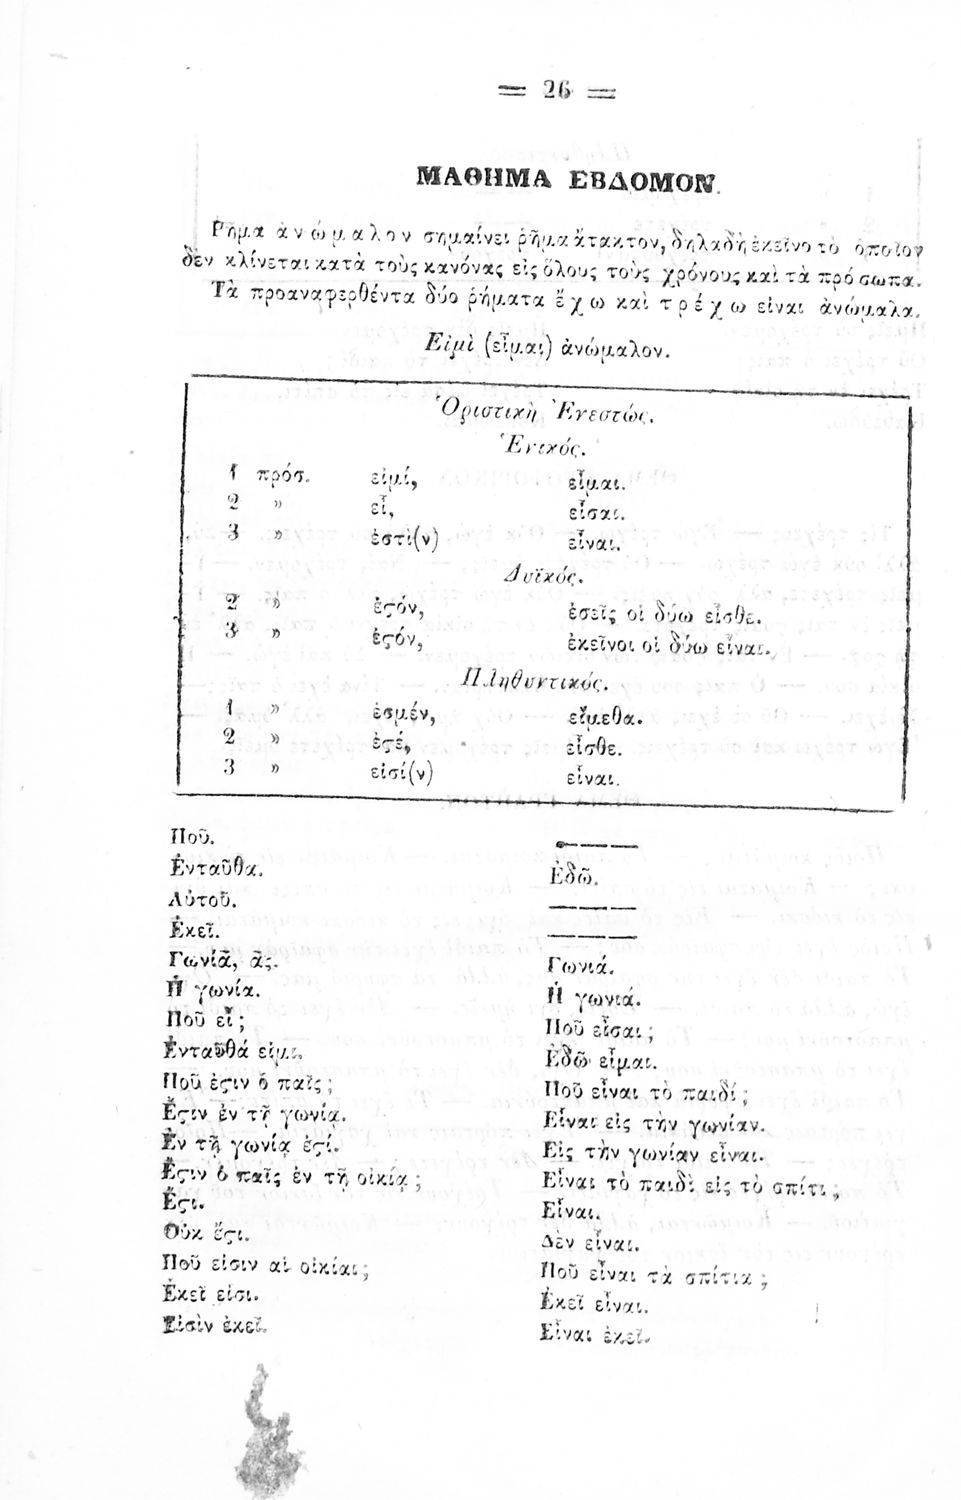 = 26 =
ΜΑΘΗΜΑ ΕΒΔΟΜΟΝ.
Ρῆμα ἀνώμαλον σημαίνει ῥῆμα ἄτακτον, δηλαδὴ ἐκεῖνο τὸ ὁποῖον
δὲν κλίνεται κατὰ τοὺς κανόνας εἰς ὅλους τοὺς χρόνους καὶ τὰ πρόσωπα.
Τὰ προαναφερθέντα δύο ῥήματα ἔχω καὶ τρέχω εἶναι ἀνώμαλα.
Εἰμὶ (εἶμαι) ἀνώμαλον.
Ὁριστικὴ Ἐνεστώς.
Ἑνικός.
1 πρόσ. εἰμί, εἶμαι.
2 » εἶ, εἶσαι.
3 » ἐστί(ν) εἶναι.
Δυϊκός.
2 » ἐϛόν, ἐσεῖς οἱ δύω εἶσθε.
3 » ἐϛόν, ἐκεῖνοι οἱ δύω εἶναι.
Πληθυντικός.
1 » ἐσμέν, εἴμεθα.
2 » ἐϛέ, εἶσθε.
3 » εἰσί(ν) εἶναι.
Ποῦ. ———
Ἐνταῦθα. Ἐδῶ.
Αὐτοῦ. ———
Ἐκεῖ. ———
Γωνία, ας. Γωνιά.
Ἡ γωνία. Ἡ γωνια.
Ποῦ εἶ; Ποῦ εἶσαι;
Ἐνταῦθά εἰμι. Ἐδῶ εἶμαι.
Ποῦ ἐϛιν ὁ παῖς; Ποῦ εἶναι τὸ παιδί;
Ἔϛιν ἐν τῇ γωνίᾳ. Εἶναι εἰς τὴν γωνίαν.
Ἐν τῇ γωνίᾳ ἐϛί. Εἰς τὴν γωνίαν εἶναι.
Ἔϛιν ὁ παῖς ἐν τῇ οἰκίᾳ; Εἶναι τὸ παιδὶ εἰς τὸ σπίτι;
Ἔϛι. Εἶναι.
Οὐκ ἔϛι. Δὲν εἶναι.
Ποῦ εἰσιν αἱ οἰκίαι; Ποῦ εἶναι τὰ σπίτια;
Ἐκεῖ εἰσι. Ἐκεῖ εἶναι.
Εἰσὶν ἐκεῖ. Εἶναι ἐκεῖ.